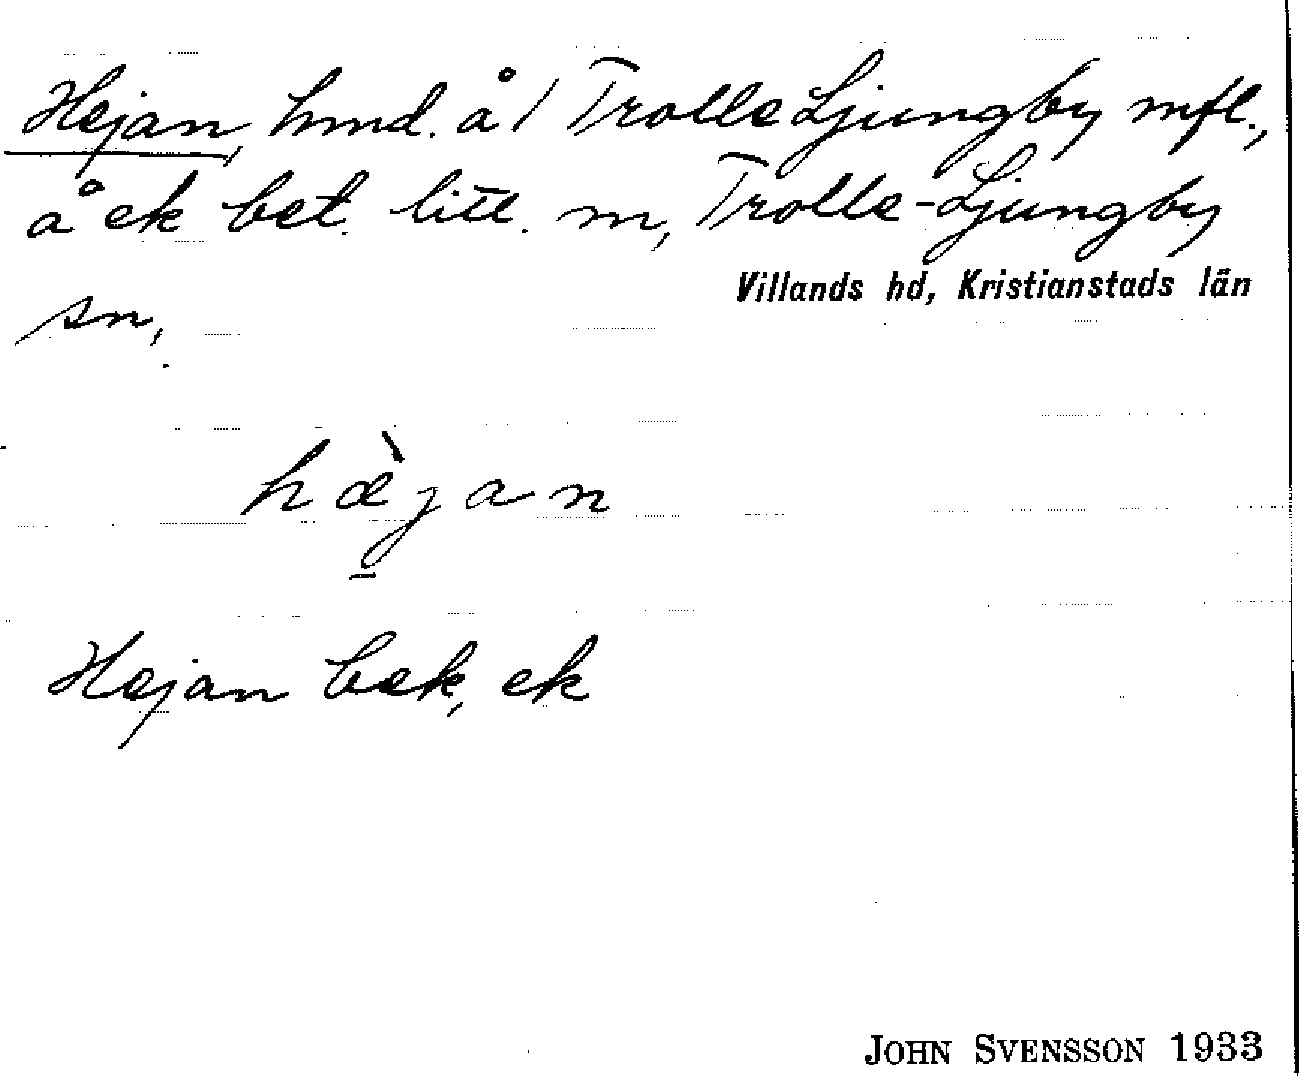 Hejan, hmd. å 1 Trolle Ljungby mfl.,
å ek bet. litt. m, Trolle-Ljungby
Villands hd, Kristianstads län
sn,
hæ̀jan
Hejan bek, ek
JOHN SVENSSON 1933